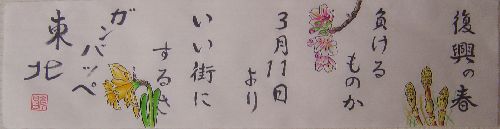 復興の春
負ける
ものか
3月11日
より
いい街に
するさ
ガンバッペ
東北